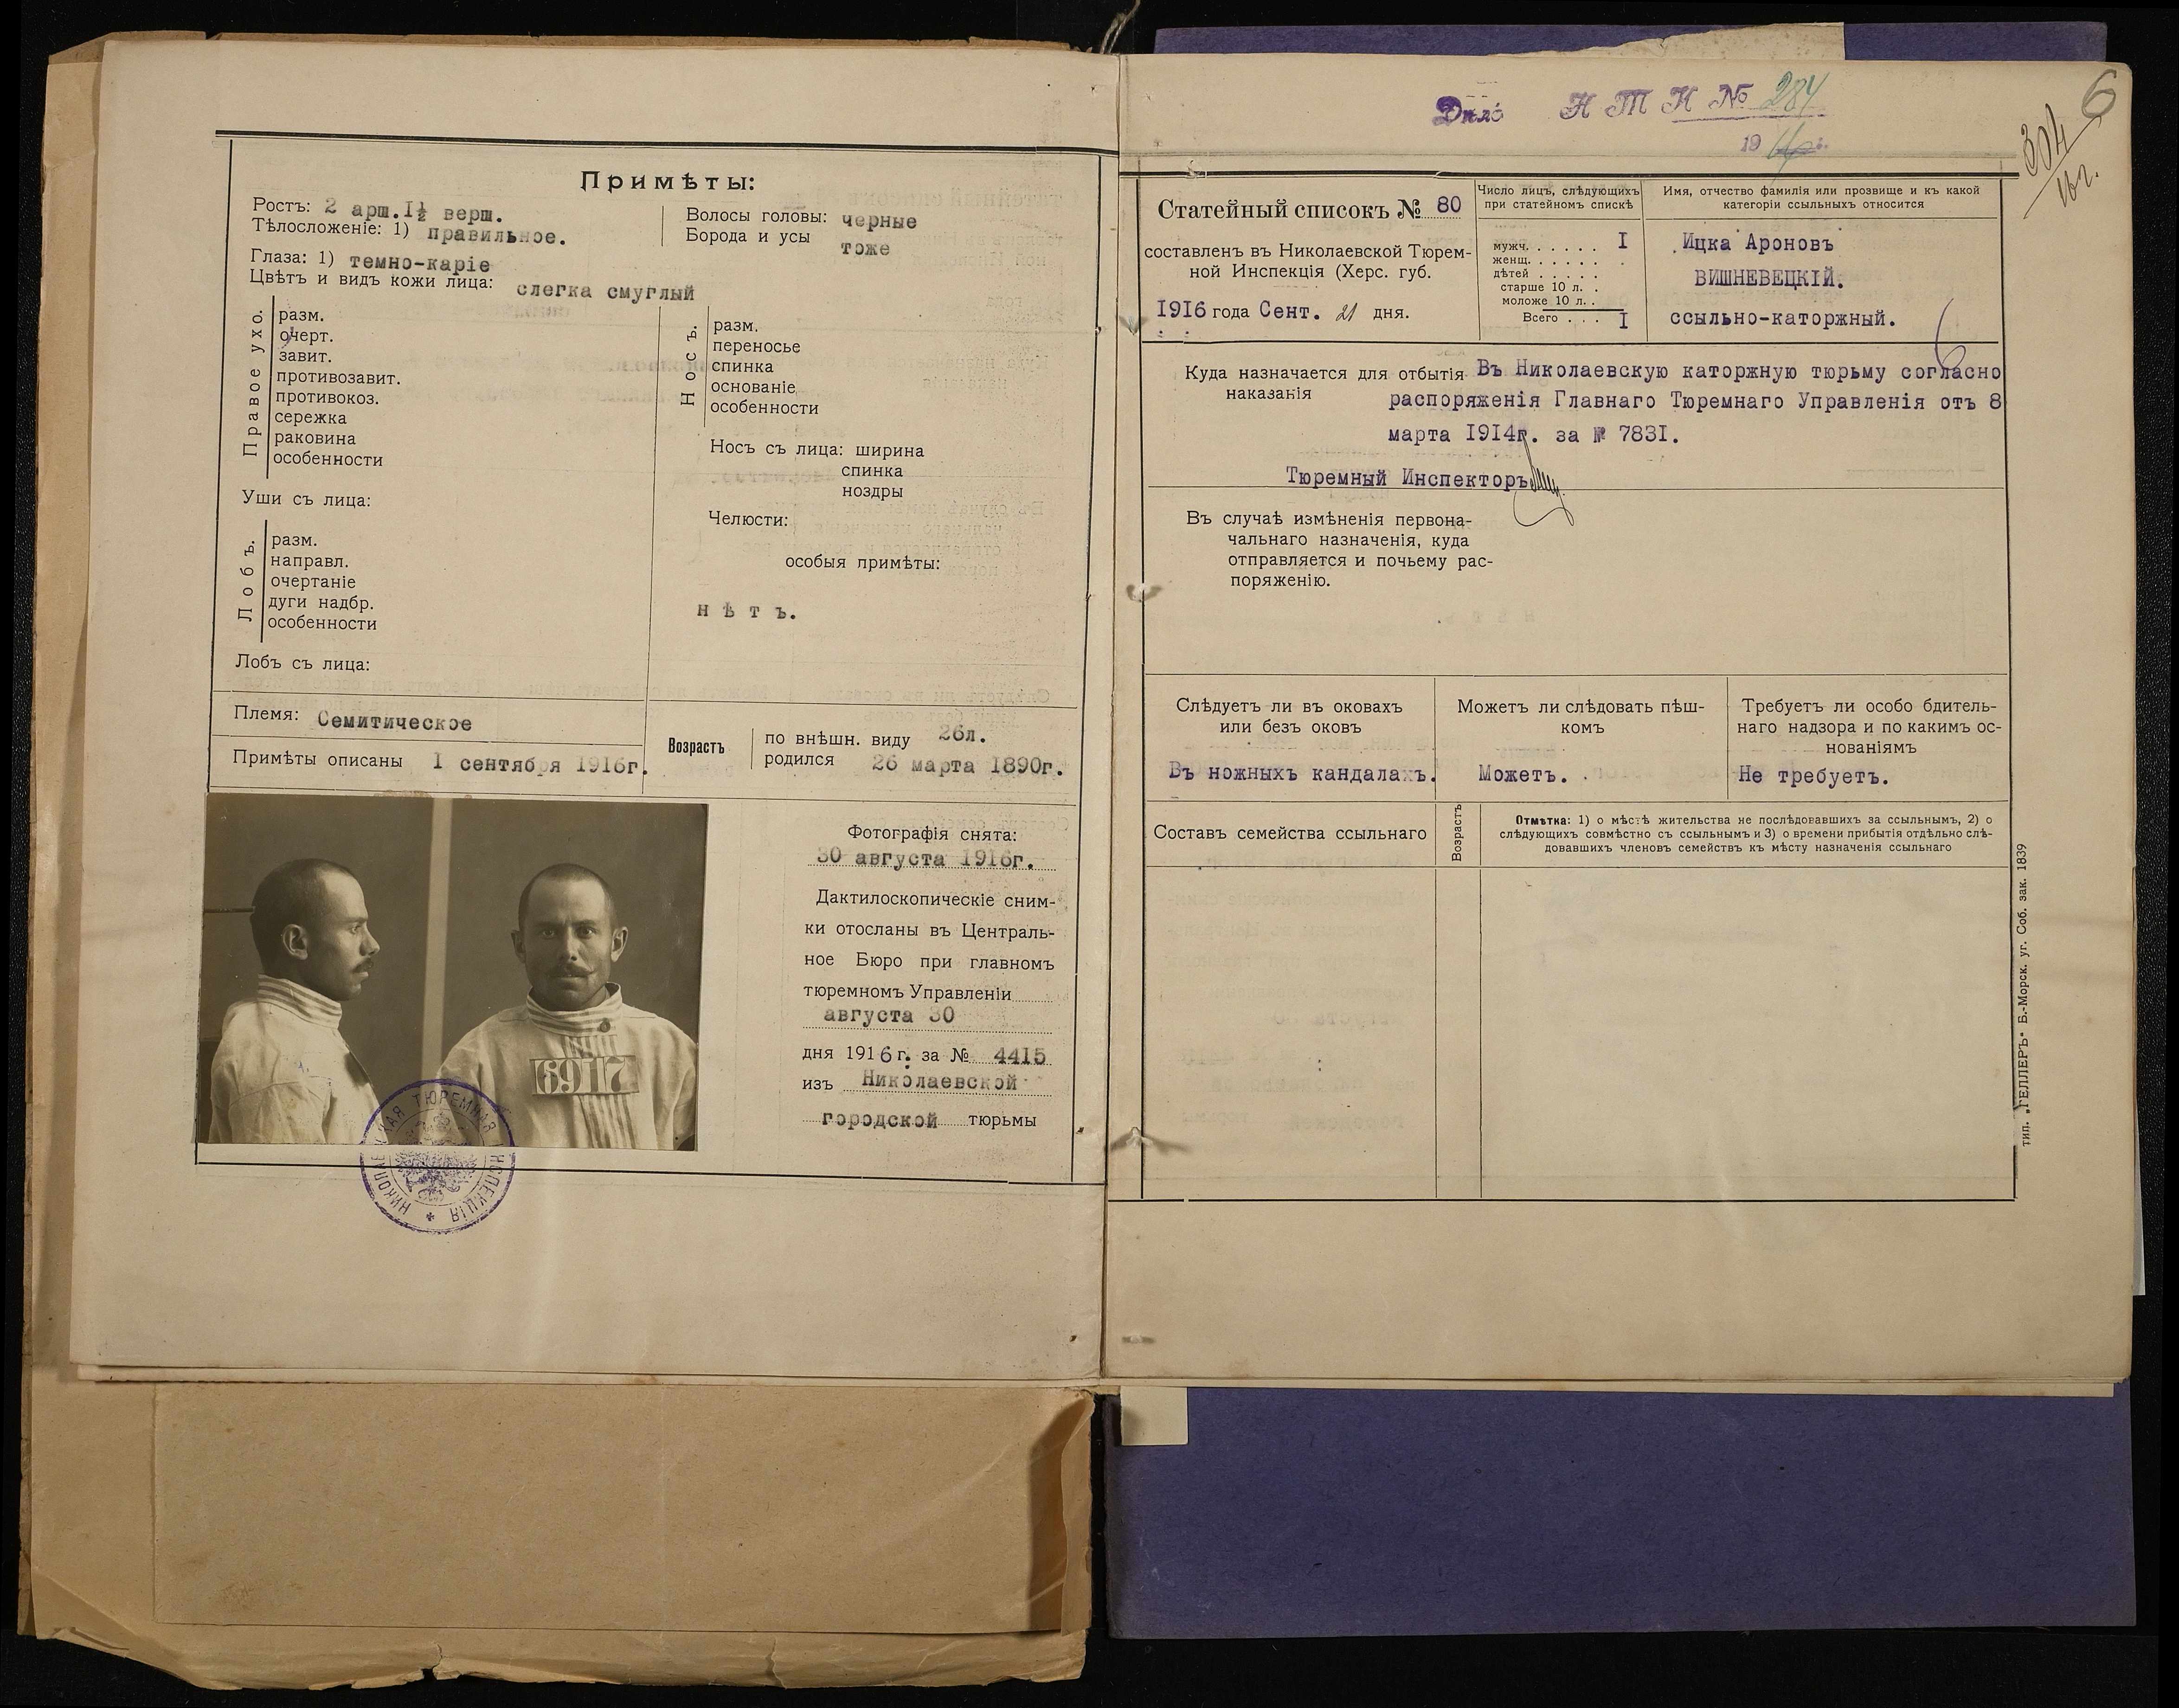 Примѣты:
Ростъ: 2 арш. I½ верш.
Тѣлосложеніе: 1) правильное.
Волосы головы: черные
Борода и усы тоже
Глаза: 1) темно-каріе
Цвѣтъ и видъ кожи лица: слегка смуглый
Правое ухо.
разм.
очерт.
завит.
противозавит.
противокоз.
сережка
раковина
особенности
Носъ.
разм.
переносье
спинка
основаніе
особенности
Носъ съ лица: ширина
спинка
ноздры
Уши съ лица:
Челюсти:
Лобъ.
разм.
направл.
очертаніе
дуги надбр.
особенности
особыя примѣты:
нѣтъ.
Лобъ съ лица:
Племя: Семитическое
Примѣты описаны 1 сентября 1916г.
Возрастъ
по внѣшн. виду 26л.
родился 26 марта 1890г.
69117
Фотографія снята:
30 августа 1916г.
Дактилоскопическіе сним-
ки отосланы въ Централь-
ное Бюро при главномъ
тюремномъ Управленіи
августа 30
дня 1916 г. за № 4415
изъ Николаевской
городской тюрьмы
НИКОЛАЕВСКАЯ ТЮРЕМНАЯ ИНСПЕКЦІЯ
Дѣло Н Т И № 284
19
6
304
16 г.
Статейный списокъ № 80
составленъ въ Николаевской Тюрем-
ной Инспекція (Херс. губ.
1916 года Сент. 21 дня.
Число лицъ, слѣдующихъ
при статейномъ спискѣ
мужч. . . . . . . I
женщ. . . . . . .
дѣтей . . . . .
старше 10 л. .
моложе 10 л. .
Всего . . . I
Имя, отчество фамилія или прозвище и къ какой
категоріи ссыльныхъ относится
Ицка Ароновъ
ВИШНЕВЕЦКІЙ.
ссыльно-каторжный.
Куда назначается для отбытія
наказанія
Въ Николаевскую каторжную тюрьму согласно
распоряженія Главнаго Тюремнаго Управленія отъ 8
марта 1914г. за № 7831.
Тюремный Инспекторъ
Въ случаѣ измѣненія первона-
чальнаго назначенія, куда
отправляется и почьему рас-
поряженію.
Слѣдуетъ ли въ оковахъ
или безъ оковъ
Въ ножныхъ кандалахъ.
Можетъ ли слѣдовать пѣш-
комъ
Можетъ.
Требуетъ ли особо бдитель-
наго надзора и по какимъ ос-
нованіямъ
Не требуетъ.
Составъ семейства ссыльнаго
Возрастъ
Отмѣтка: 1) о мѣстѣ жительства не послѣдовавшихъ за ссыльнымъ, 2) о
слѣдующихъ совмѣстно съ ссыльнымъ и 3) о времени прибытія отдѣльно слѣ-
довавшихъ членовъ семействъ къ мѣсту назначенія ссыльнаго
тип. „ГЕЛЛЕРЪ" Б.-Морск. уг. Соб. зак. 1839